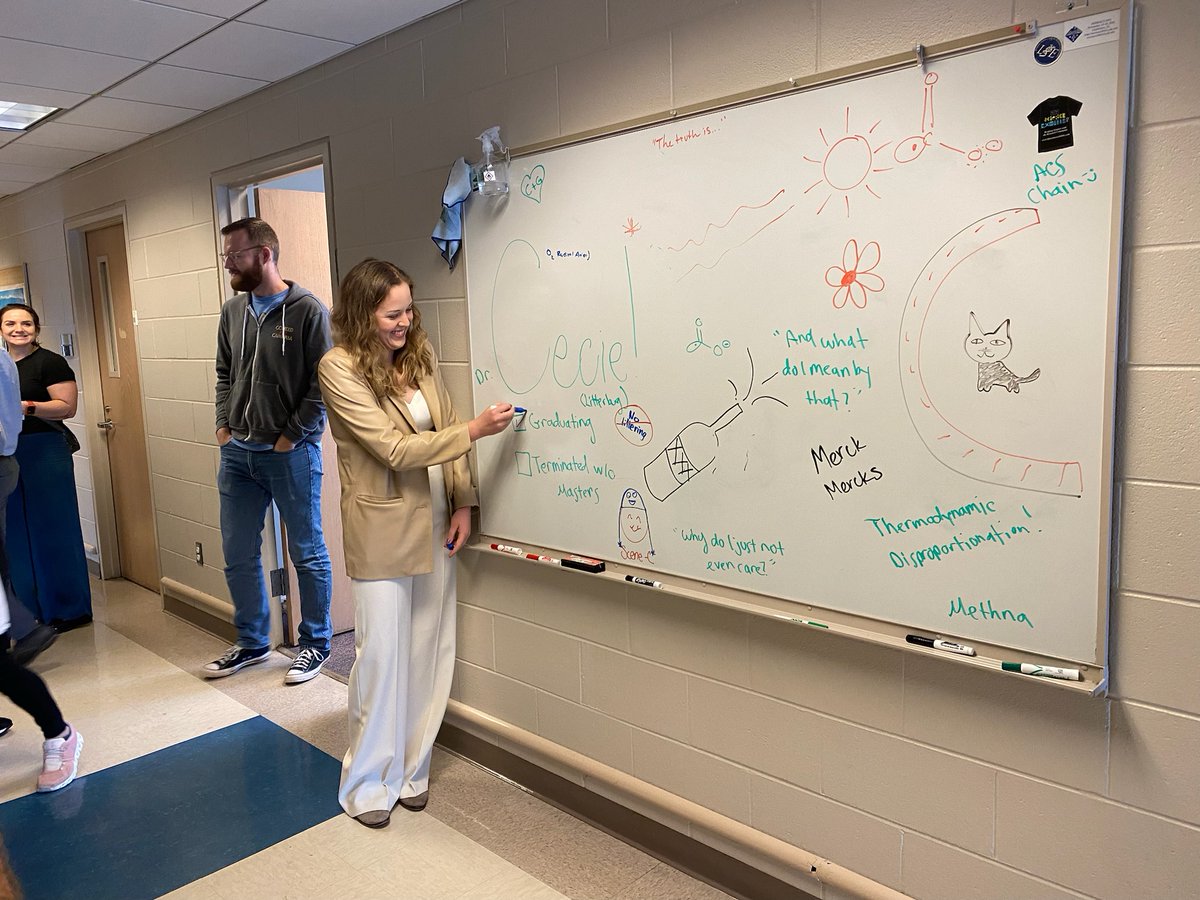 "The truth is..."
C+G
ACS
Chain
Dr. Ceciel
"And what
do I mean by
that?"
No
littering
Graduating
Terminated w/o
Masters
Merck
Mercks
Thermodynamic
Disproportionation!
"why do I just not
even care?"
Methna